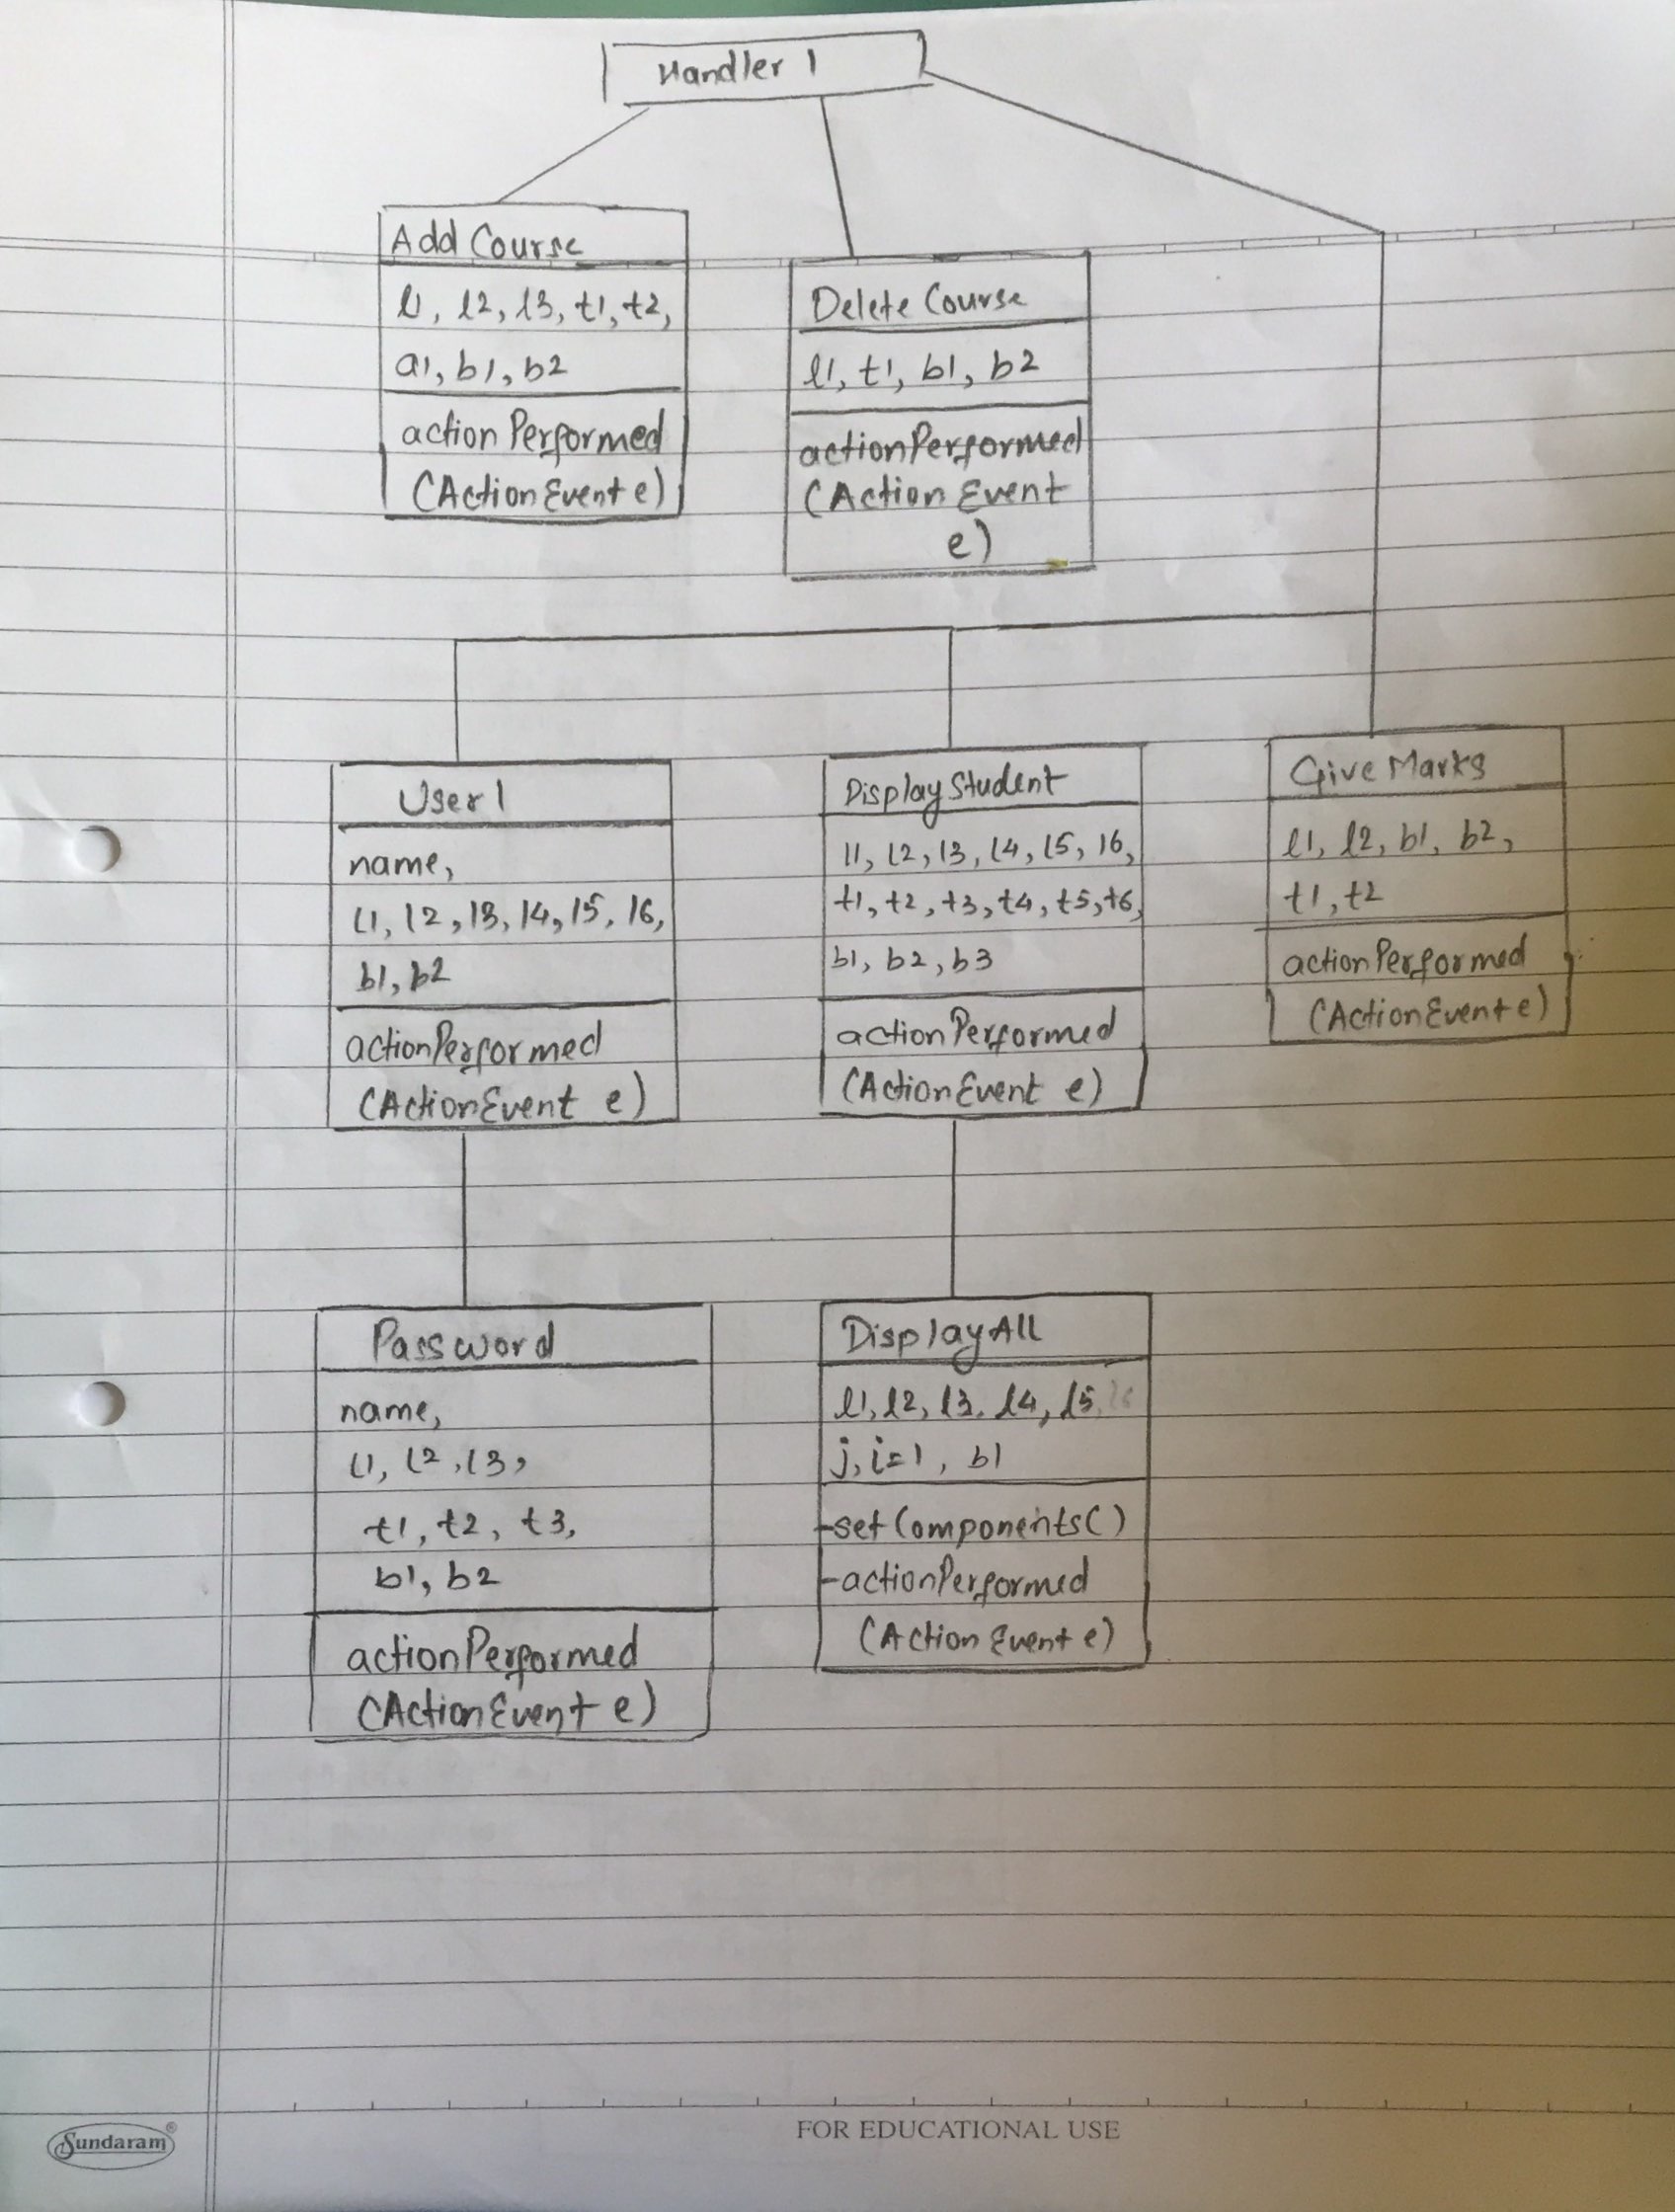 Handler 1
Add Course
l1, l2, l3, t1, t2,
a1, b1, b2
actionPerformed
(ActionEvent e)
Delete Course
l1, t1, b1, b2
actionPerformed
(Action Event
e)
User1
name,
l1, l2, l3, l4, l5, l6,
b1, b2
actionPerformed
(ActionEvent e)
DisplayStudent
l1, l2, l3, l4, l5, l6,
t1, t2, t3, t4, t5, t6,
b1, b2, b3
actionPerformed
(ActionEvent e)
Give Marks
l1, l2, b1, b2,
t1, t2
actionPerformed
(ActionEvent e)
Password
name,
l1, l2, l3,
t1, t2, t3,
b1, b2
actionPerformed
(ActionEvent e)
DisplayAll
l1, l2, l3, l4, l5, l6
j, i=1, b1
-setComponents()
-actionPerformed
(Action Event e)
Sundaram®
FOR EDUCATIONAL USE